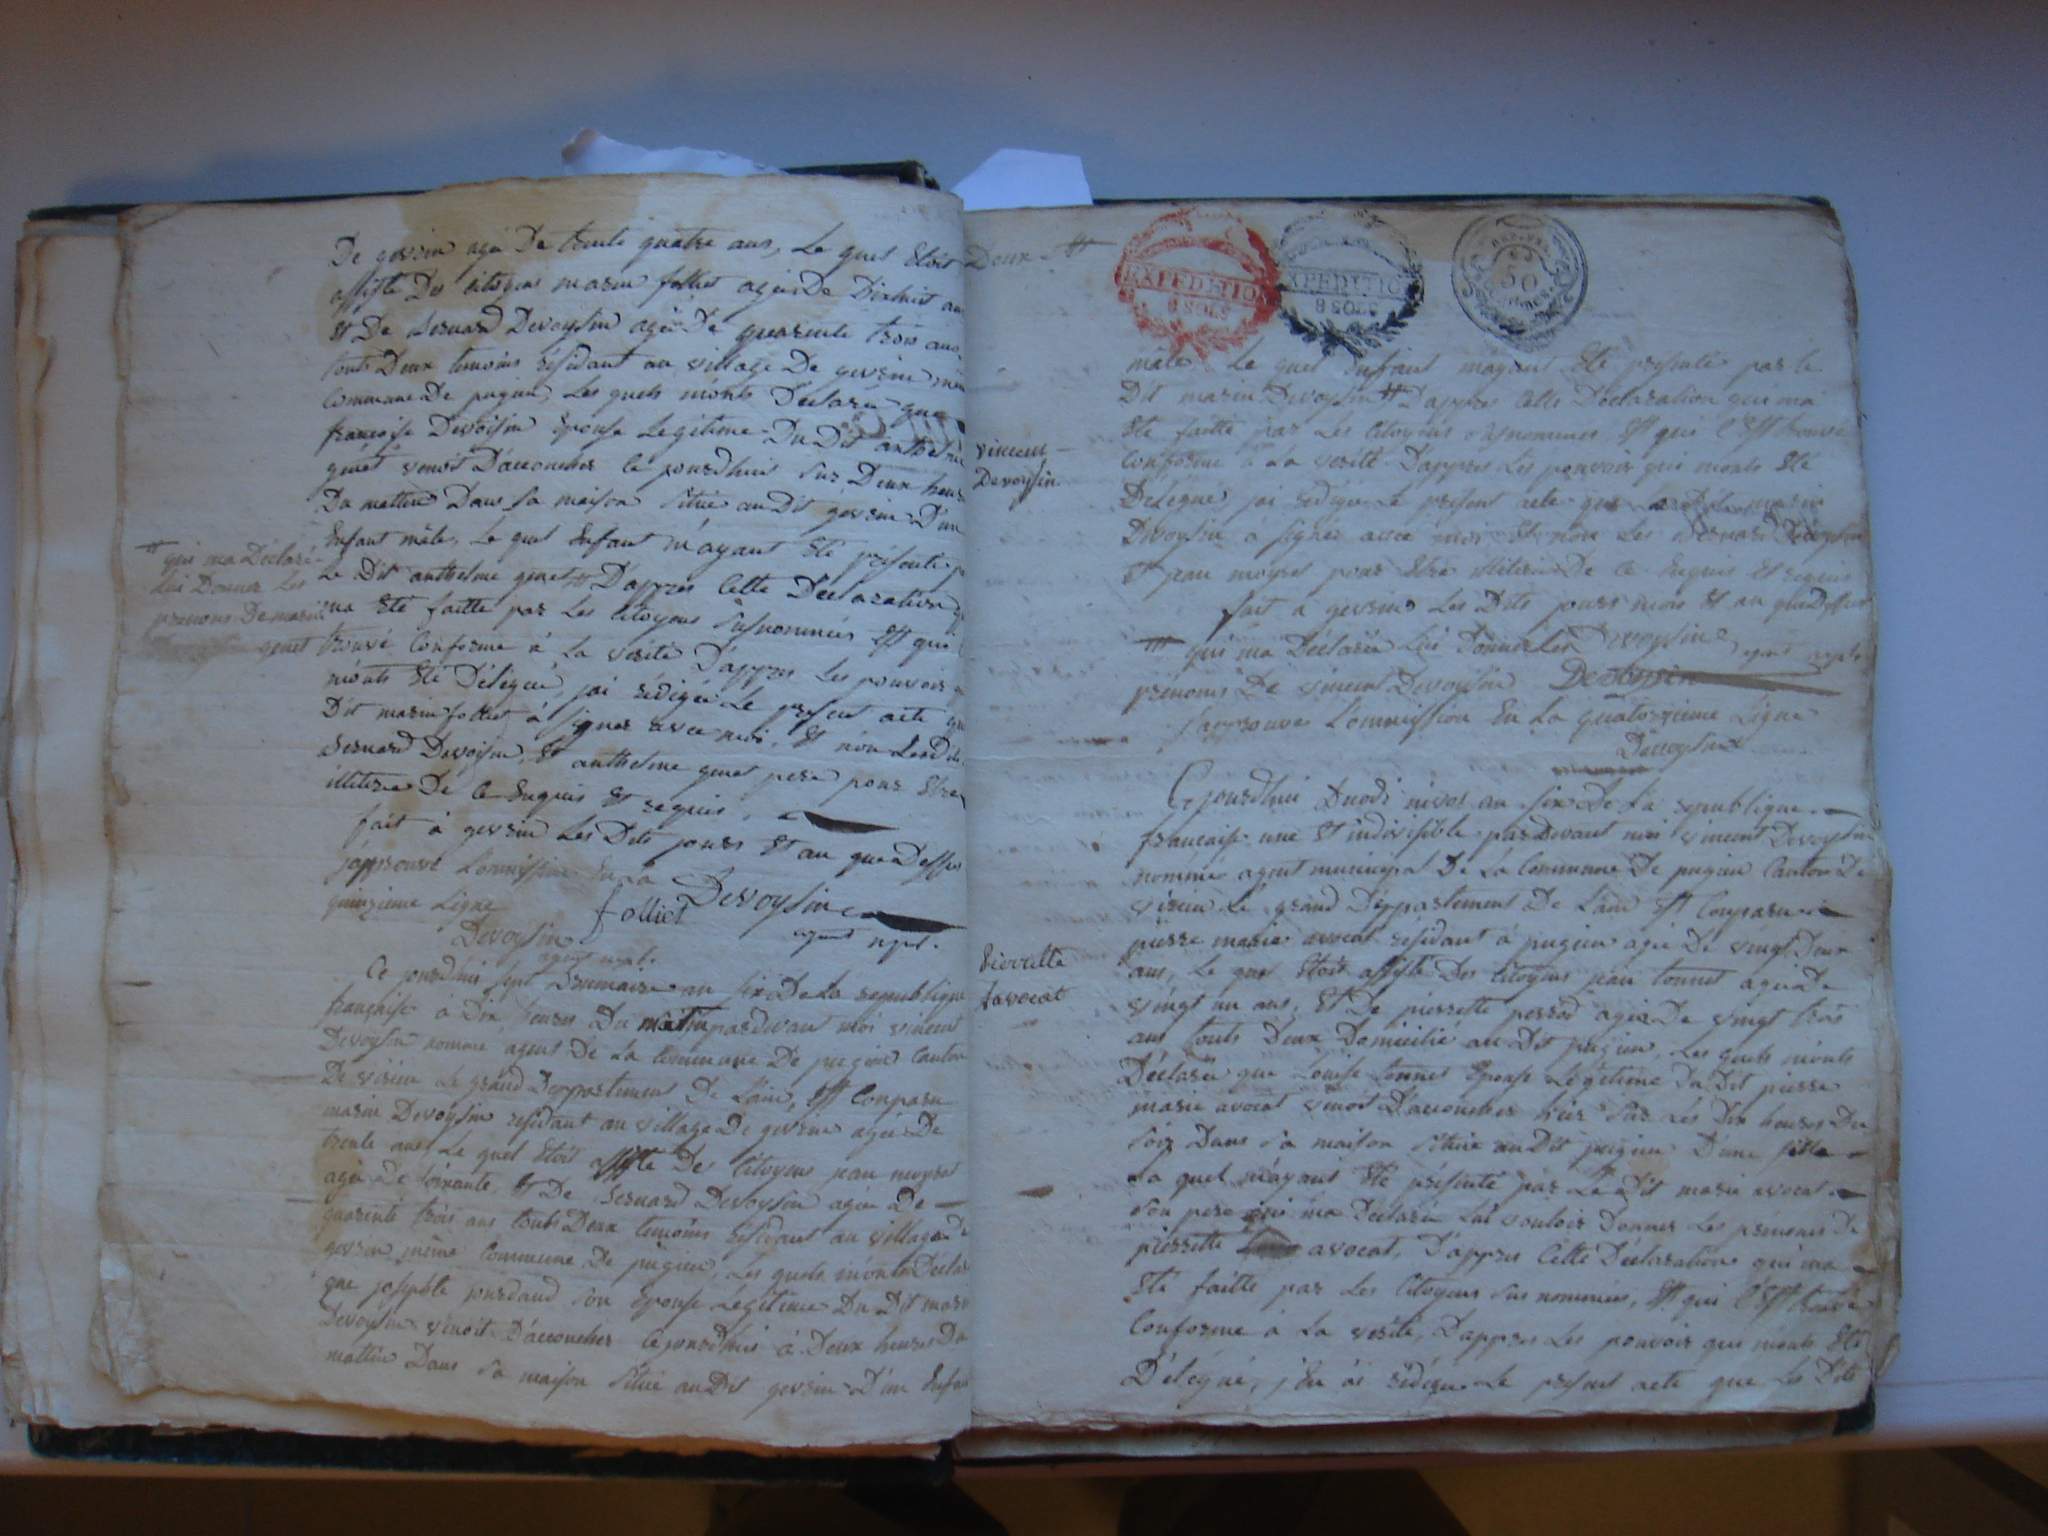 De gevrin agé De trente quatre ans, Le quel Etoit
assisté Des citoyens marin folliet agée De Dixhuit an
Et De Bernard Devoysin agée De quarente trois ans
touts Deux temoins résidant au village De gevrin même
Commune De pugieu, Les quels m'onts Declaré que
françoise Devoisin Epouse Legitime Du Dit anthelme
genet venoit D'accoucher Ce jourdhui sur Deux heures
Du mattin Dans sa maison située au Dit gevrin D'un
Enfant mâle, Le quel Enfant m'ayant Eté présenté p
Le Dit anthelme genet # D'appres Cette Déclaration q
ma Eté faitte par Les Citoyens susnommées Est qui
trouvé Conforme à La verité D'appres Les pouvoir q
m'onts Eté Délegué, jai rédigée Le present acte que
Dit marin folliet à signer avec moi, Et non Lesdits
Bernard Devoisin, Et anthelme genet pere pour Etre
illitere De Ce Enquis Et requis,
fait à gevrin Les Dits jours Et an que Dessus
japprouve Lommission En La
quinzieme Ligne
folliet Devoysin
agent mpl.
Devoysin
agent mpl.
# qui ma Déclaré
lui Donner Les
prenoms De marin
genet
Ce jourdhui sept Brumaire an six De La republique
française à Dix heures Du matin pardevant moi vincent
Devoysin nommé agent De La Commune De pugieu Canton
De virieu Le grand Deppartement De L'ain, Est Comparu
marin Devoysin residant au village De gevrin agée De
trente ans, Le quel Etoit assisté Des Citoyens jean moyret
agée De soixante, Et De Bernard Devoysin agée De
quarente trois ans touts Deux temoins residant au village De
gevrin même Commune De pugieu, Les quels m'onts Déclaré
que josephte jourdand son Epouse Légitime Du Dit marin
Devoysin venoit D'accoucher Cejourdhui à Deux heures Du
mattin Dans sa maison située au Dit gevrin D'un Enfant
Deux #
EXPEDITION
8 SOLS
EXPEDITION
8 SOLS
50
vincent
Devoysin
male Le quel Enfant mayant Eté presenté par le
Dit marin Devoysin # D'appres Cette Déclaration qui ma
Eté faitte par Les Citoyens susnommées Est qui C'Est trouvé
Conforme à La verité D'appres Les pouvoir qui monts Eté
Délegué, jai rédigée Le present acte que Le Dit marin
Devoysin à signée avec moi Et non Les Bernard Devoysin
Et jean moyret pour Etre illitere De Ce Enquis Et requis
fait à gevrin Les Dits jours mois Et an que Dessus
# qui ma Déclaré Lui Donner Les Devoysin agent mpl.
prénoms De vincent Devoysin Devoysin
japprouve Lommission En La quatorzieme Ligne
Devoysin
pierrette
avocat
Cejourdhui Duodi nivos an six De La republique
francaise une Et indivisible pardevant moi vincent Devoysin
nommé agent municipal De La Commune De pugieu Canton De
virieu Le grand Deppartement De Lain Est Comparu
pierre marie avocat résidant à pugieu agée De vingt Deux
ans, Le quel Etoit assisté Des Citoyens jean tonnet agée De
vingt un ans, Et De pierrette perrod agée De vingt trois
ans touts Deux Domicilié au Dit pugieu, Les quels m'onts
Déclarée que Louise tonnet Epouse Légitime Du Dit pierre
marie avocat venoit D'accoucher hier sur Les Dix heures Du
soir Dans sa maison située au Dit pugieu D'une fille
La quel m'ayant Eté présenté par Le Dit marie avocat
son pere qui ma Declarée Lui vouloir Donner Les prénoms De
pierrette avocat, D'appres Cette Déclaration qui ma
Eté faitte par Les Citoyens sus nommées, Est qui C'Est trouvé
Conforme à La verité, D'appres Les pouvoir qui m'onts Eté
Délegué, j'En ai rédigée Le present acte que Les Dits